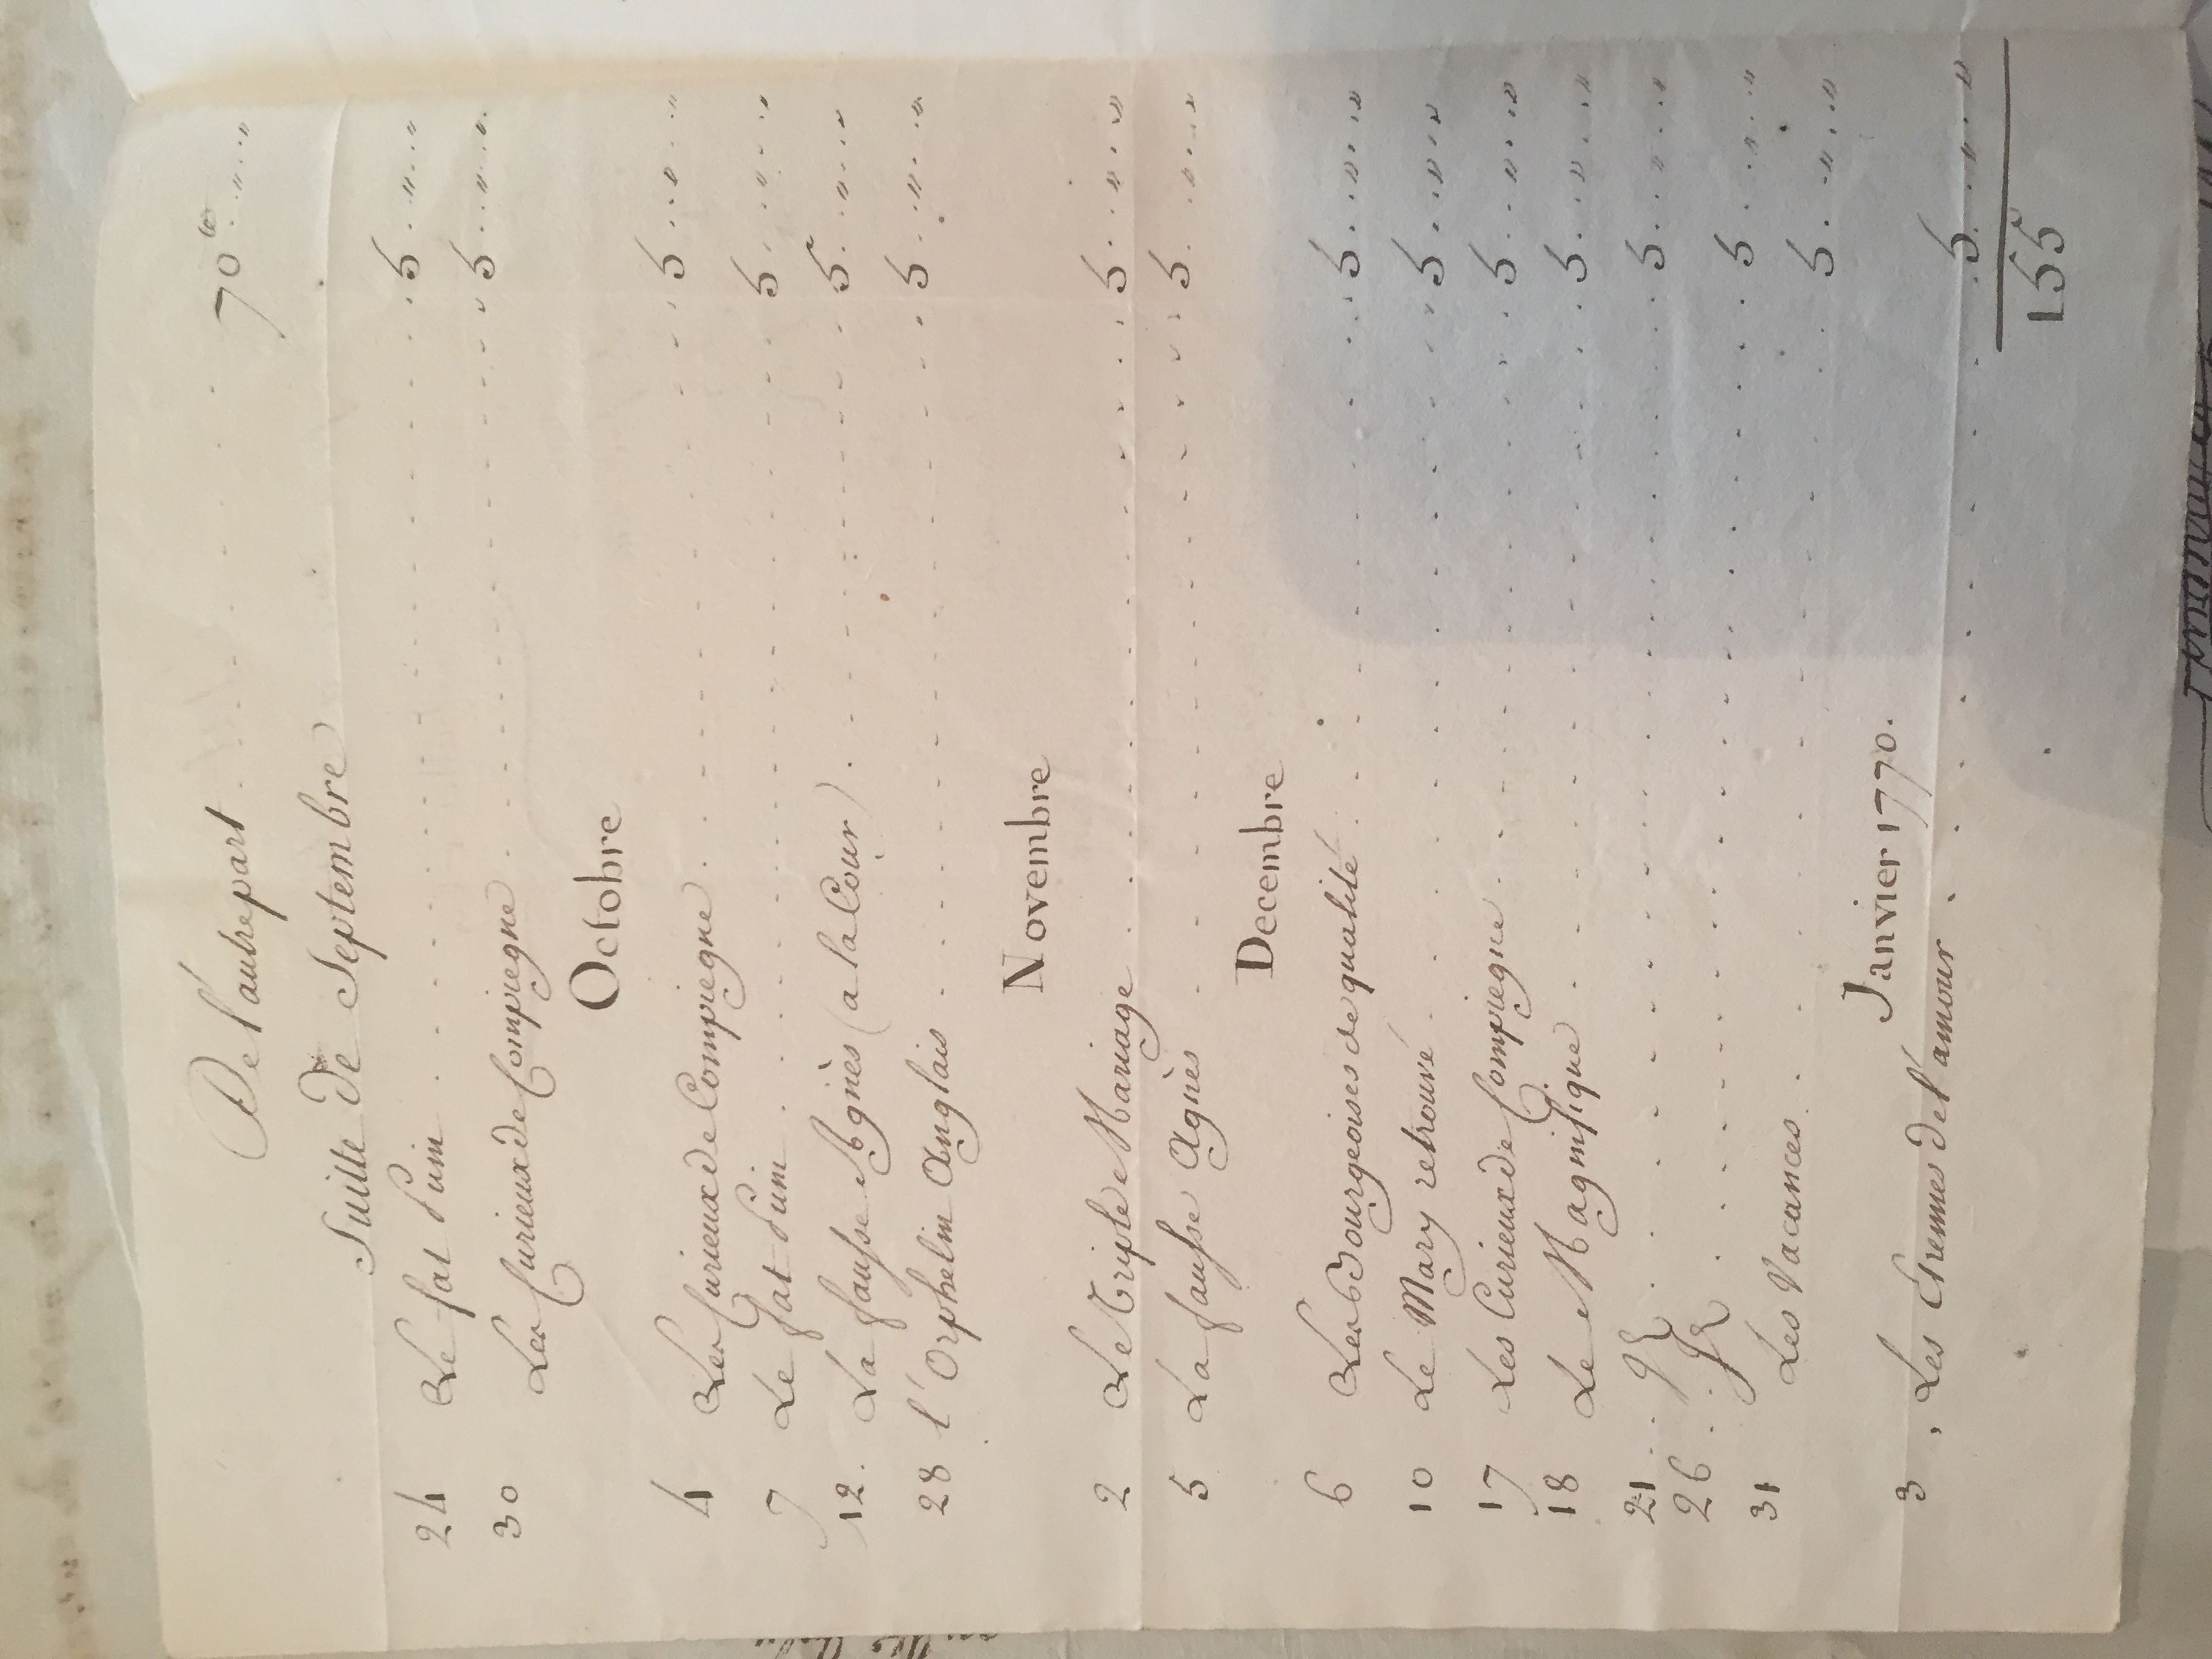 De l'autre part . . . . . . . . 70 tt. „ . . „
Suitte de Septembre
24 Le fat Puni . . . . . . . . 5 . „ . . „
30 Les Curieux de Compiegne . . . . . . . . 5 . . „ . „ .
Octobre
4 Les Curieux de Compiegne . . . . . . . . 5 . . „ . . „
7 Le fat Puni . . . . . . . . 5 . . „ . . „
12. La fausse Agnès (a la Cour) . . . . . . . . 5 . . „ . . „
28 l'Orphelin Anglais . . . . . . . . 5 . . „ . . „
Novembre
2 Le Triple Mariage . . . . . . . . 5 . . „ . . „
5 La fausse Agnès . . . . . . . . 5 . . „ . . „
Decembre
6 Les Bourgeoises de qualité . . . . . . . . 5 . . „ . . „
10 Le Mary retrouvé . . . . . . . . 5 . . „ . . „
17 Les Curieux de Compiegne . . . . . . . . 5 . . „ . . „
18 Le Magnifique . . . . . . . . 5 . . „ . . „
21 . . . . . . . . 5 . . „ . . „
26 . . . . . . . . 5 . . „ . . „
31 Les Vacances . . . . . . . . 5 . . „ . . „
Janvier 1770.
3 Les Etrennes de l'amour . . . . . . . . 5 . . „ . . „
155